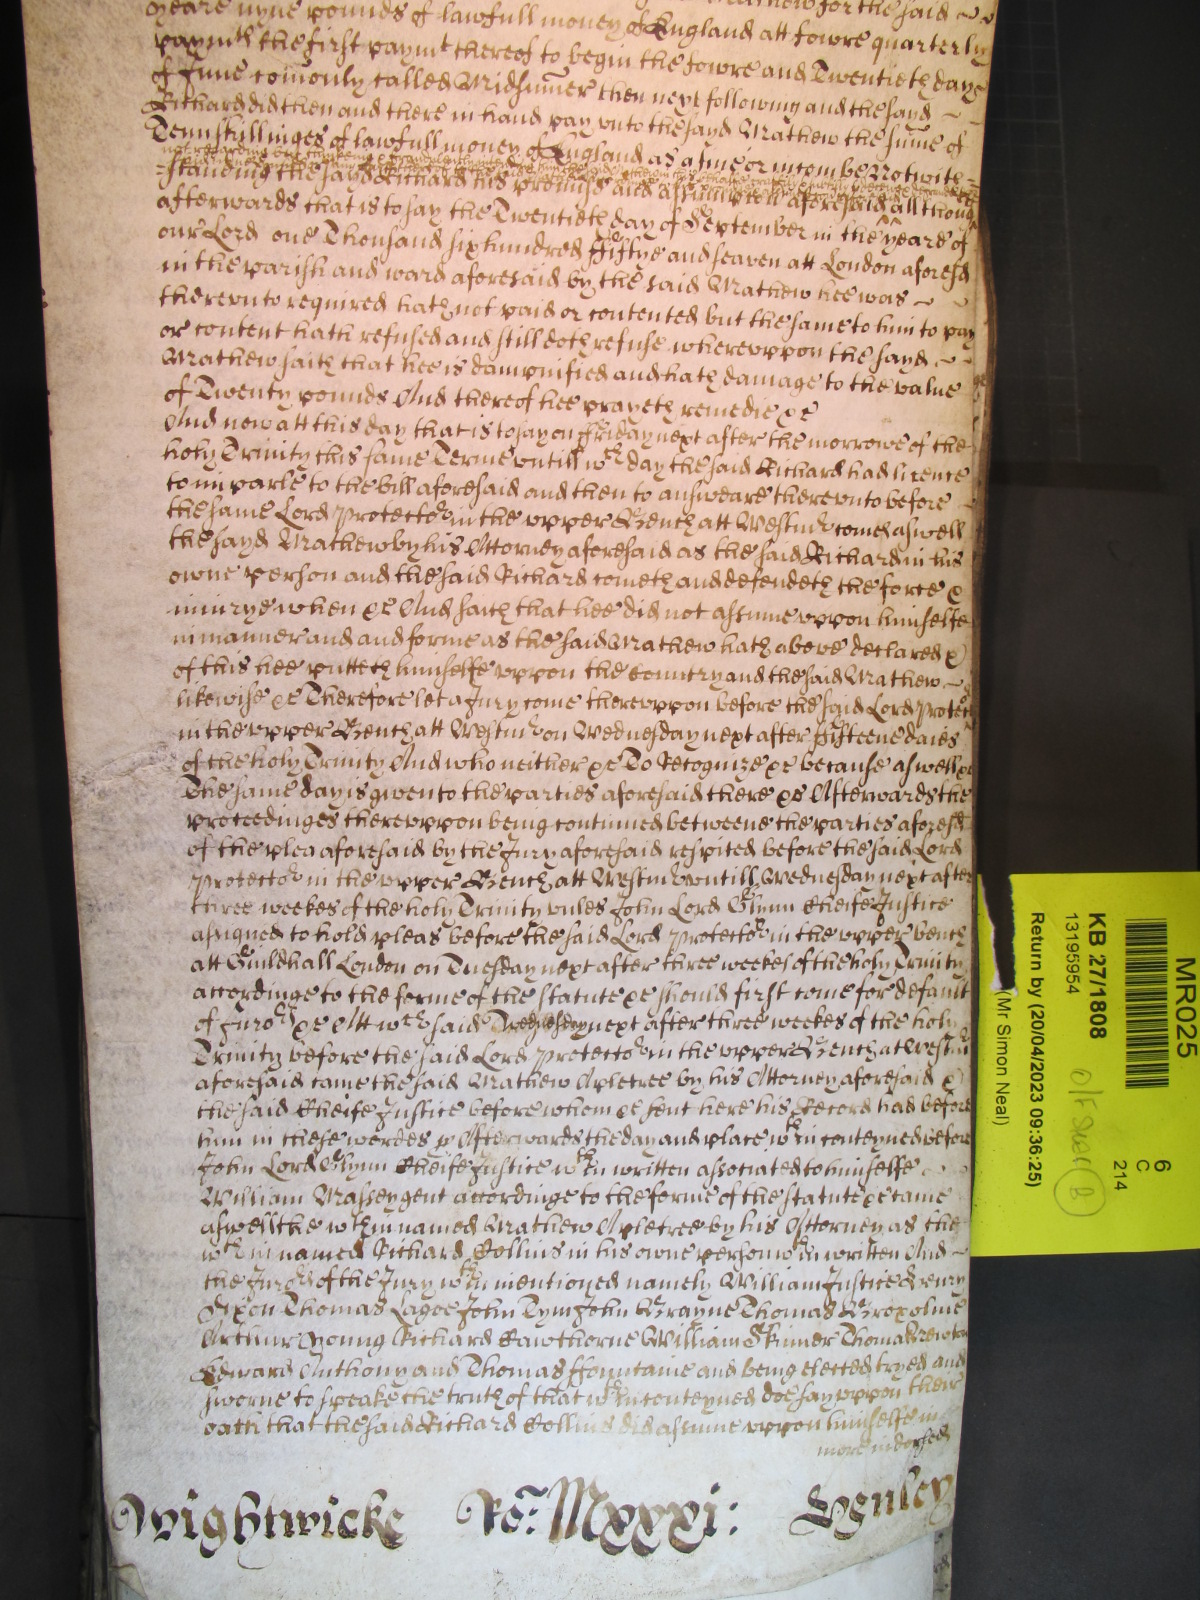 yeare nyne pounds of lawfull money of England att fowre quarterly
paymts the first paymt thereof to begin the fowre and Twentieth daye
of June comonly called Midsumer then next following and the sayd
Richard did then and there in hand pay vnto the sayd Mathew the sume of
Tenn shillinges of lawfull money of England as a fine or incombe Notwith=
=standing the sayd Richard his promise and assumpcon aforesaid all though
afterwards that is to say the Twentieth day of September in the yeare of
our Lord one Thousand six hundred fiftye and seaven att London aforesd
in the parish and ward aforesaid by the said Mathew hee was
therevnto required hath not paid or contented but the same to him to pay
or content hath refused and still doth refuse wherevppon the sayd
Mathew saith that hee is dampnified and hath damage to the value
of Twenty pounds And thereof hee prayeth remedie &c
And now att this day that is to say on ffriday next after the morrowe of the
holy Trinity this same Terme vntill wch day the said Richard had licence
to imparle to the bill aforesaid and then to answeare therevnto before
the same Lord Protector in the vpper Bench att Westmr cometh aswell
the sayd Mathew by his Attorney aforesaid as the said Richard in his
owne person and the said Richard cometh and defendeth the force &
iniurye when &c And saith that hee did not assume vppon himselfe
in manner and and forme as the said Mathew hath above declared &
of this hee putteth himselfe vppon the Country and the said Mathew
likewise &c Therefore let a Jury come therevppon before the said Lord Protect
in the vpper Bench att Westmr on Wednesday next after ffifteene daies
of the holy Trinity And who neither &c To Recognize &c because aswell &c
The same day is given to the parties aforesaid there &c Afterwards the
proceedinges therevppon being continued betweene the parties aforesd
of the plea aforesaid by the Jury aforesaid respited before the said Lord
Protector in the vpper Bench att Westmr vntill Wednesday next after
three weekes of the holy Trinity vnles John Lord Glynn Cheife Justice
assigned to hold pleas before the said Lord Protector in the vpper bench
att Guildhall London on Tuesday next after three weekes of the holy Trinity
accordinge to the forme of the statute &c should first come for default
of Juror &c Att wch said Wednesday next after three weekes of the holy
Trinity before the said Lord Protector in the vpper Bench at Westmr
aforesaid came the said Mathew Apletree by his Attorney aforesaid &
the said Cheife Justice before whom &c sent here his Record had before
him in these wordes p Afterwards the day and place wthin conteyned before
John Lord Glynn Cheife Justice wthin written associated to himselfe
William Massey gent accordinge to the forme of the statute &c came
aswell the wthin named Mathew Apletree by his Attorney as the
wthin named Richard Collins in his owne person wthin written And
the Juror of the Jury wthin mentioned namely William Justice Henry
Dixon Thomas Lagoe John Tym John Brayne Thomas Broxolme
Arthur Young Richard Hawthorne William Skinner Thomas Newton
Edward Anthony and Thomas ffountaine and being elected tryed and
sworne to speake the truth of that wthin conteyned doe say vppon their
oath that the said Richard Collins did assume vppon himselfe in
more indorsed
Wightwicke Ro: Mxxxi: Henley
MR025
6
C
214
KB 27/1808
13195954
Return by (20/04/2023 09:36:25)
(Mr Simon Neal)